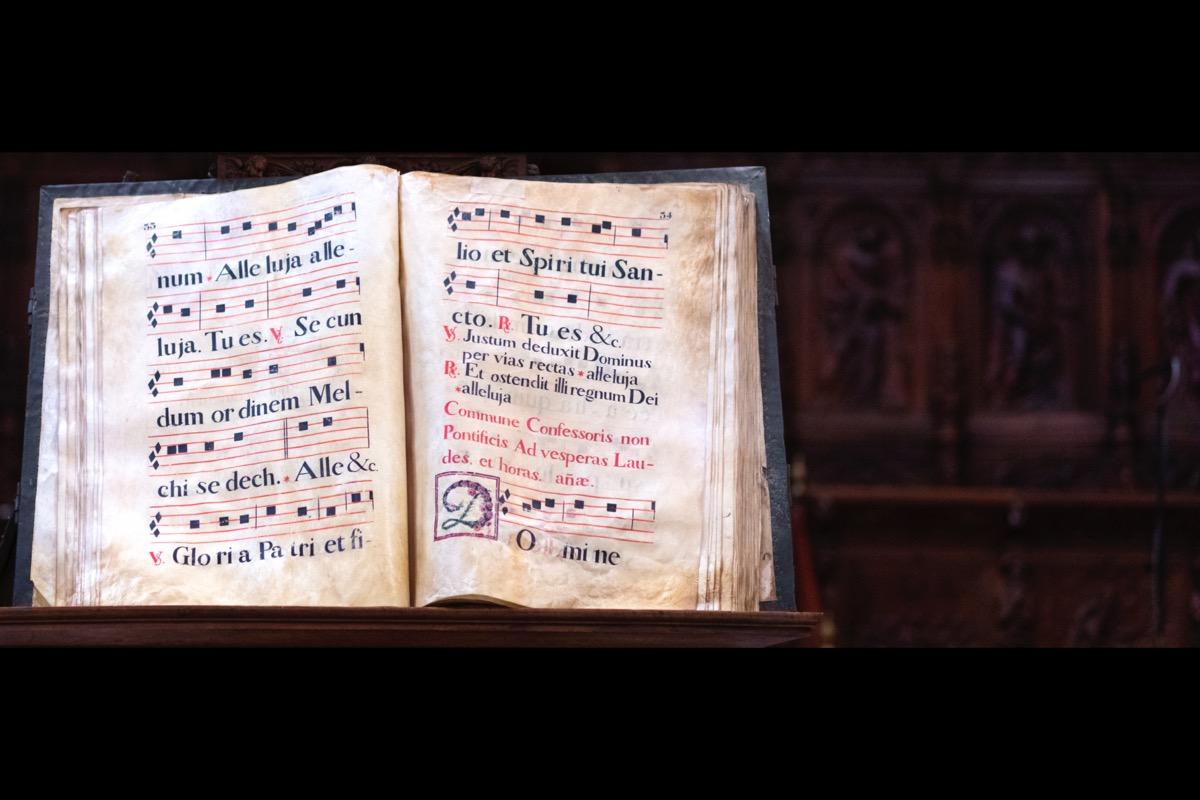 53
num * Alle luja alle-
luja. Tu es. ℣ Se cun
dum or dinem Mel-
chi se dech. * Alle &c.
℣. Glo ri a Pa tri et fi-
54
lio et Spi ri tui San-
cto. ℟. Tu es &c.
℣. Justum deduxit Dominus
per vias rectas * alleluja
℟. Et ostendit illi regnum Dei
* alleluja
Commune Confessoris non
Pontificis Ad vesperas Lau-
des. et horas. añæ.
D O mi ne